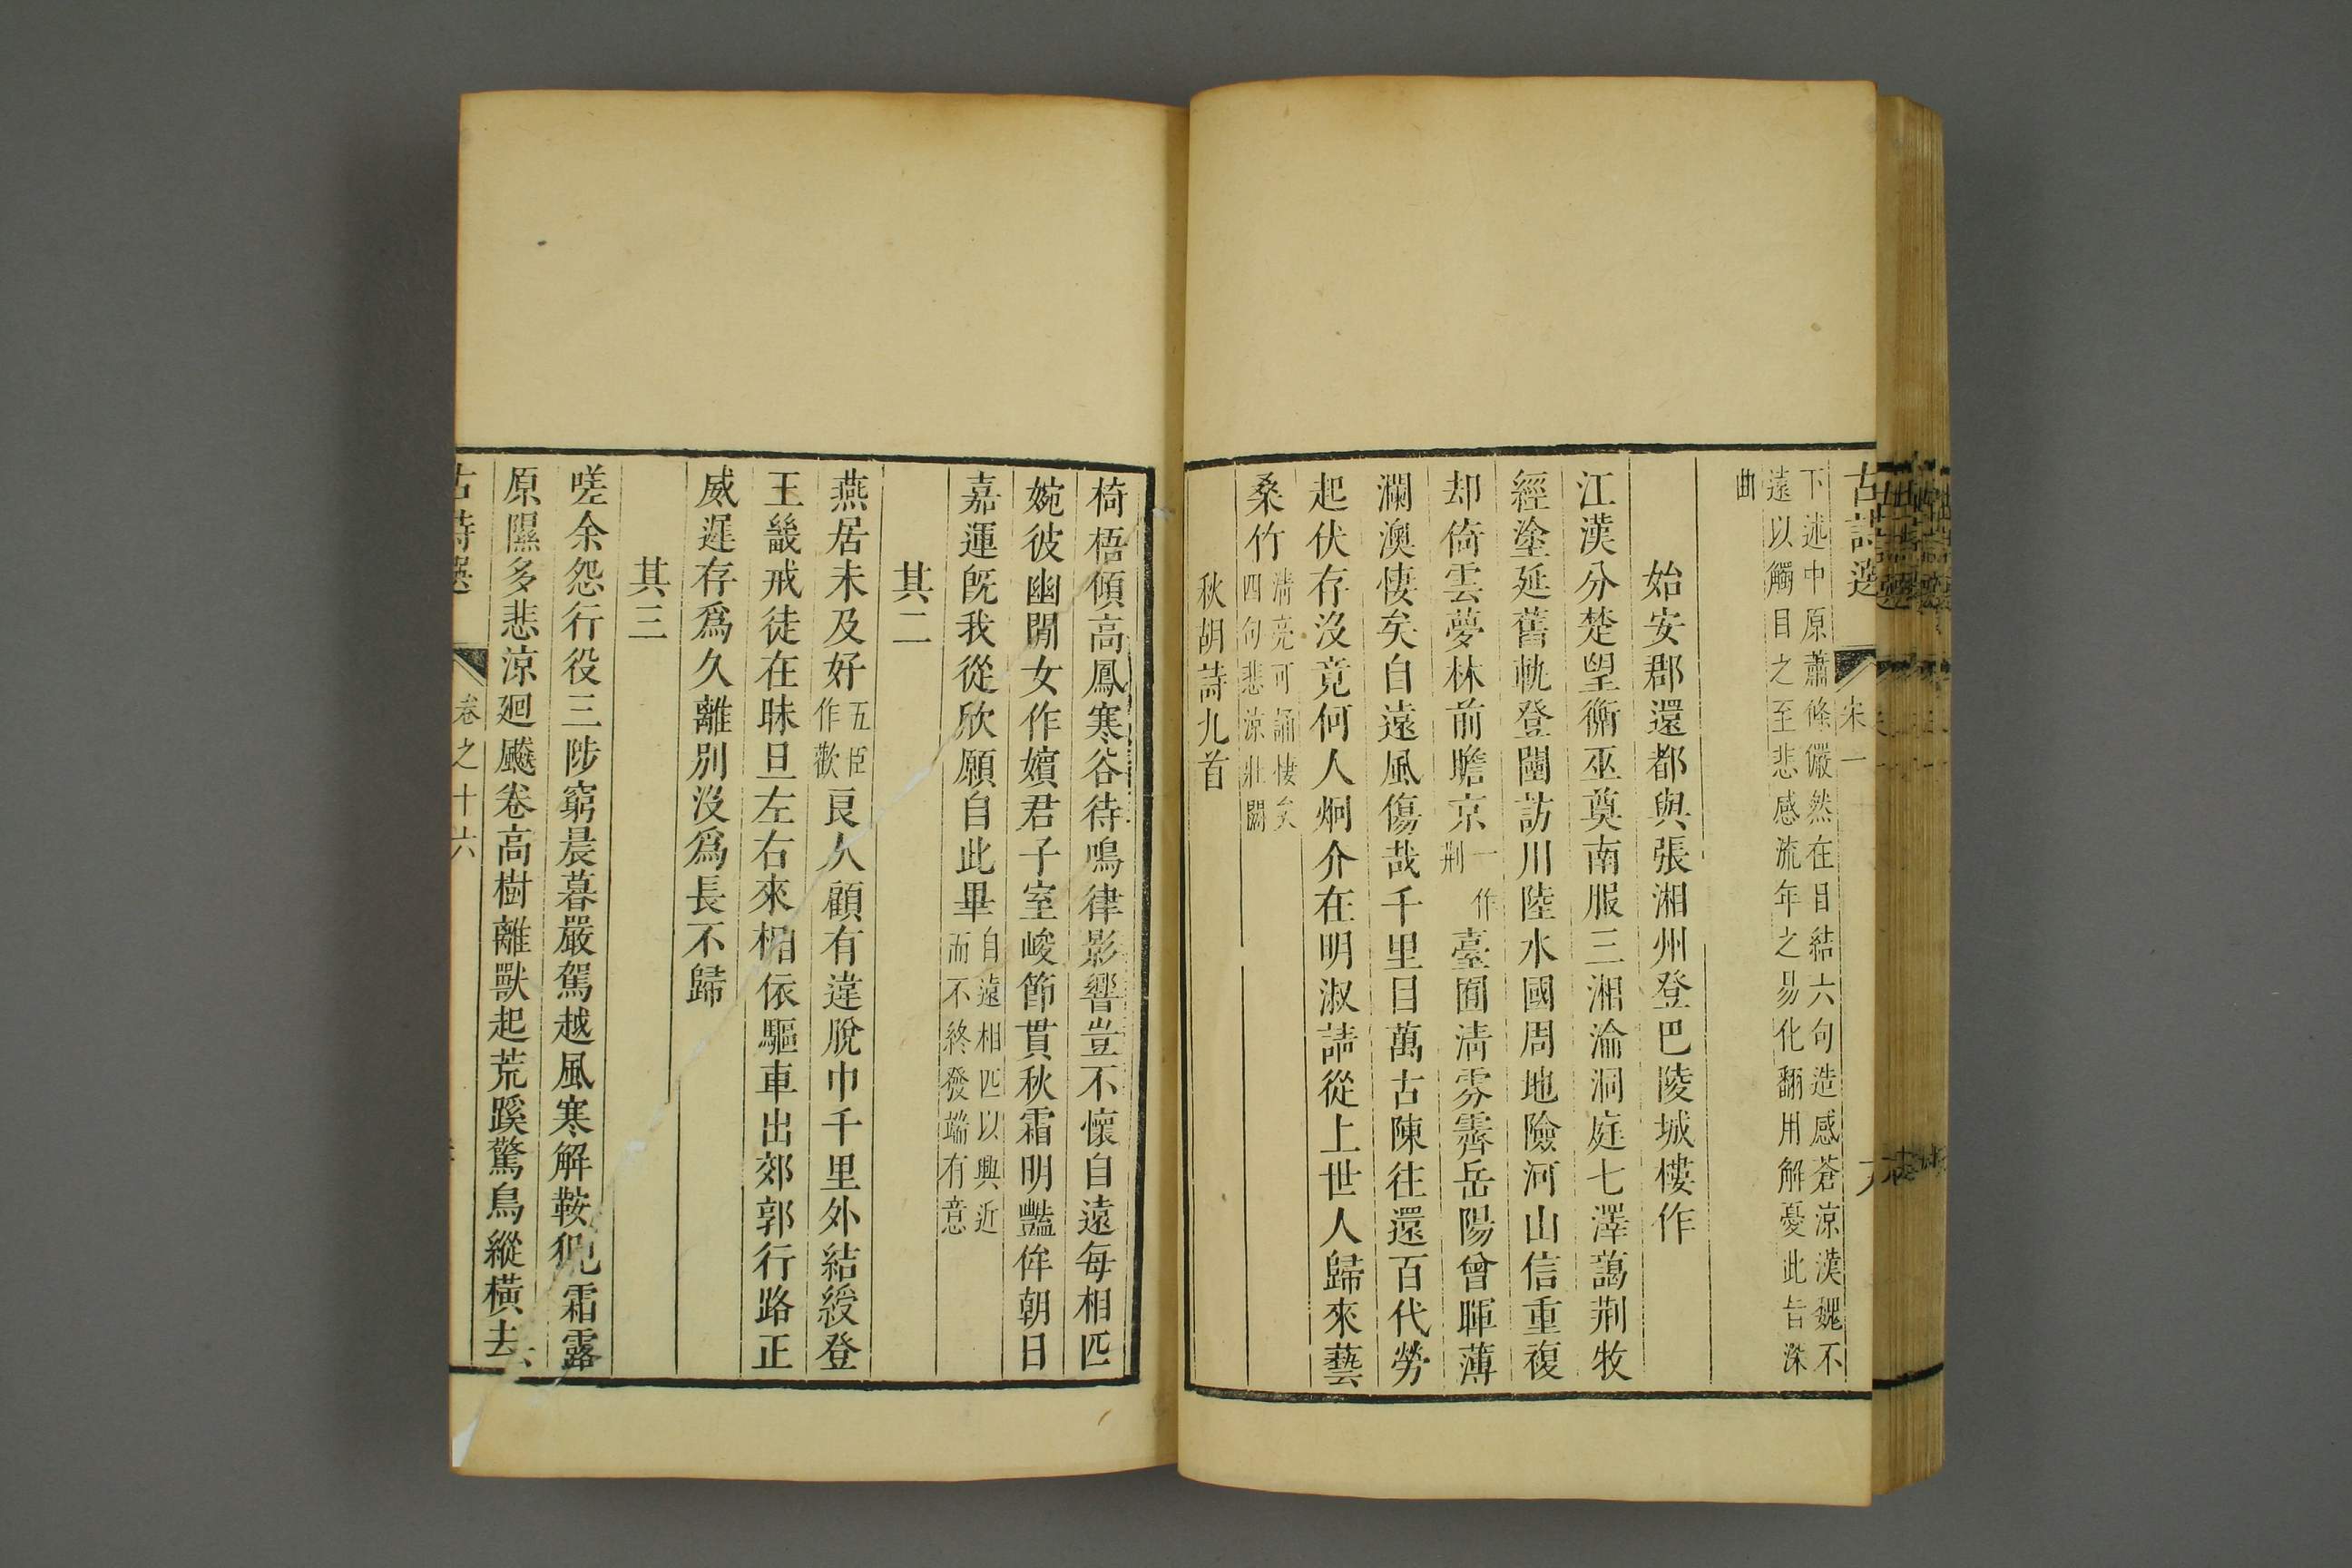 古詩選 宋一
下述中原蕭條儼然在目結六句造感蒼涼漢魏不
遠以觸目之至悲感流年之易化翻用解憂此旨深
曲
始安郡還都與張湘州登巴陵城樓作
江漢分楚望衡巫奠南服三湘淪洞庭七澤藹荆牧
經塗延舊軌登闉訪川陸水國周地險河山信重複
却倚雲夢林前瞻京一作荆臺囿清雰霽岳陽曾暉薄
瀾澳悽矣自遠風傷哉千里目萬古陳往還百代勞
起伏存没竟何人炯介在明淑請從上世人歸來藝
桑竹清亮可誦悽矣四句悲涼壯闊
秋胡詩九首
椅梧傾高鳳寒谷待鳴律影響豈不懷自遠每相匹
婉彼幽閒女作嬪君子室峻節貫秋霜明豔侔朝日
嘉運旣我從欣願自此畢自遠相匹以興近而不終發端有意
其二
燕居未及好五臣作歡良人顧有違脫巾千里外結綬登
王畿戒徒在昧旦左右來相依驅車出郊郭行路正
威遲存爲久離別没爲長不歸
其三
嗟余怨行役三陟窮晨暮嚴駕越風寒解鞍犯霜露
原隰多悲涼廻飈卷高樹離獸起荒蹊驚鳥縱橫去
古詩選 卷之十六